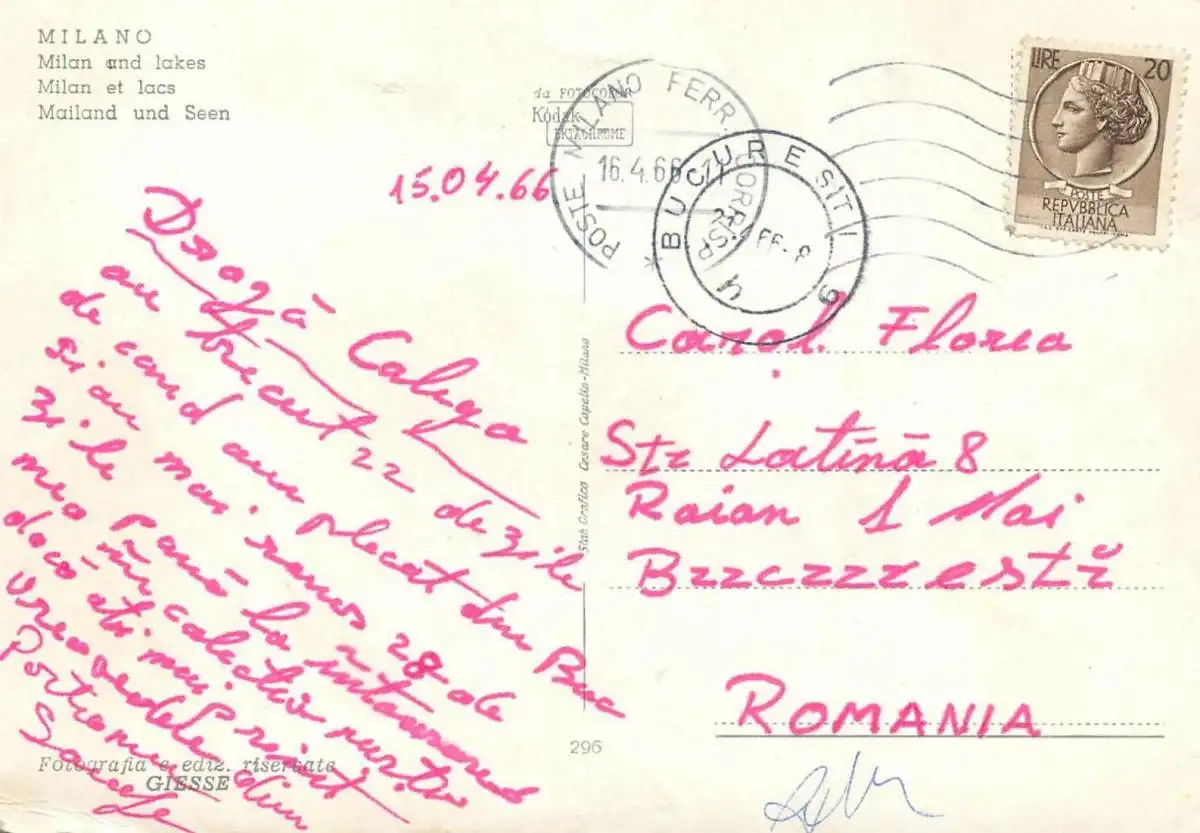 MILANO
Milan and lakes
Milan et lacs
Mailand und Seen
da FOTOCOLOR
Kodak
EKTACHROME
POSTE MILANO FERR. CORRISP
16.4.66
BUCURESTI 9
LIRE 20
POSTE
REPVBBLICA
ITALIANA
15.04.66
Dragă Caluga
au trecut 22 de zile
de cand am plecat din Buc
si au mai ramas 28 de
zile pană la intoarcerea
mea
dacă ati mai primit
vreo vedere din
Portile
Carol Florea
Str Latină 8
Raion 1 Mai
București
ROMANIA
Stab Grafico Cesare Capello-Milano
296
Fotografia e ediz. riservate
GIESSE